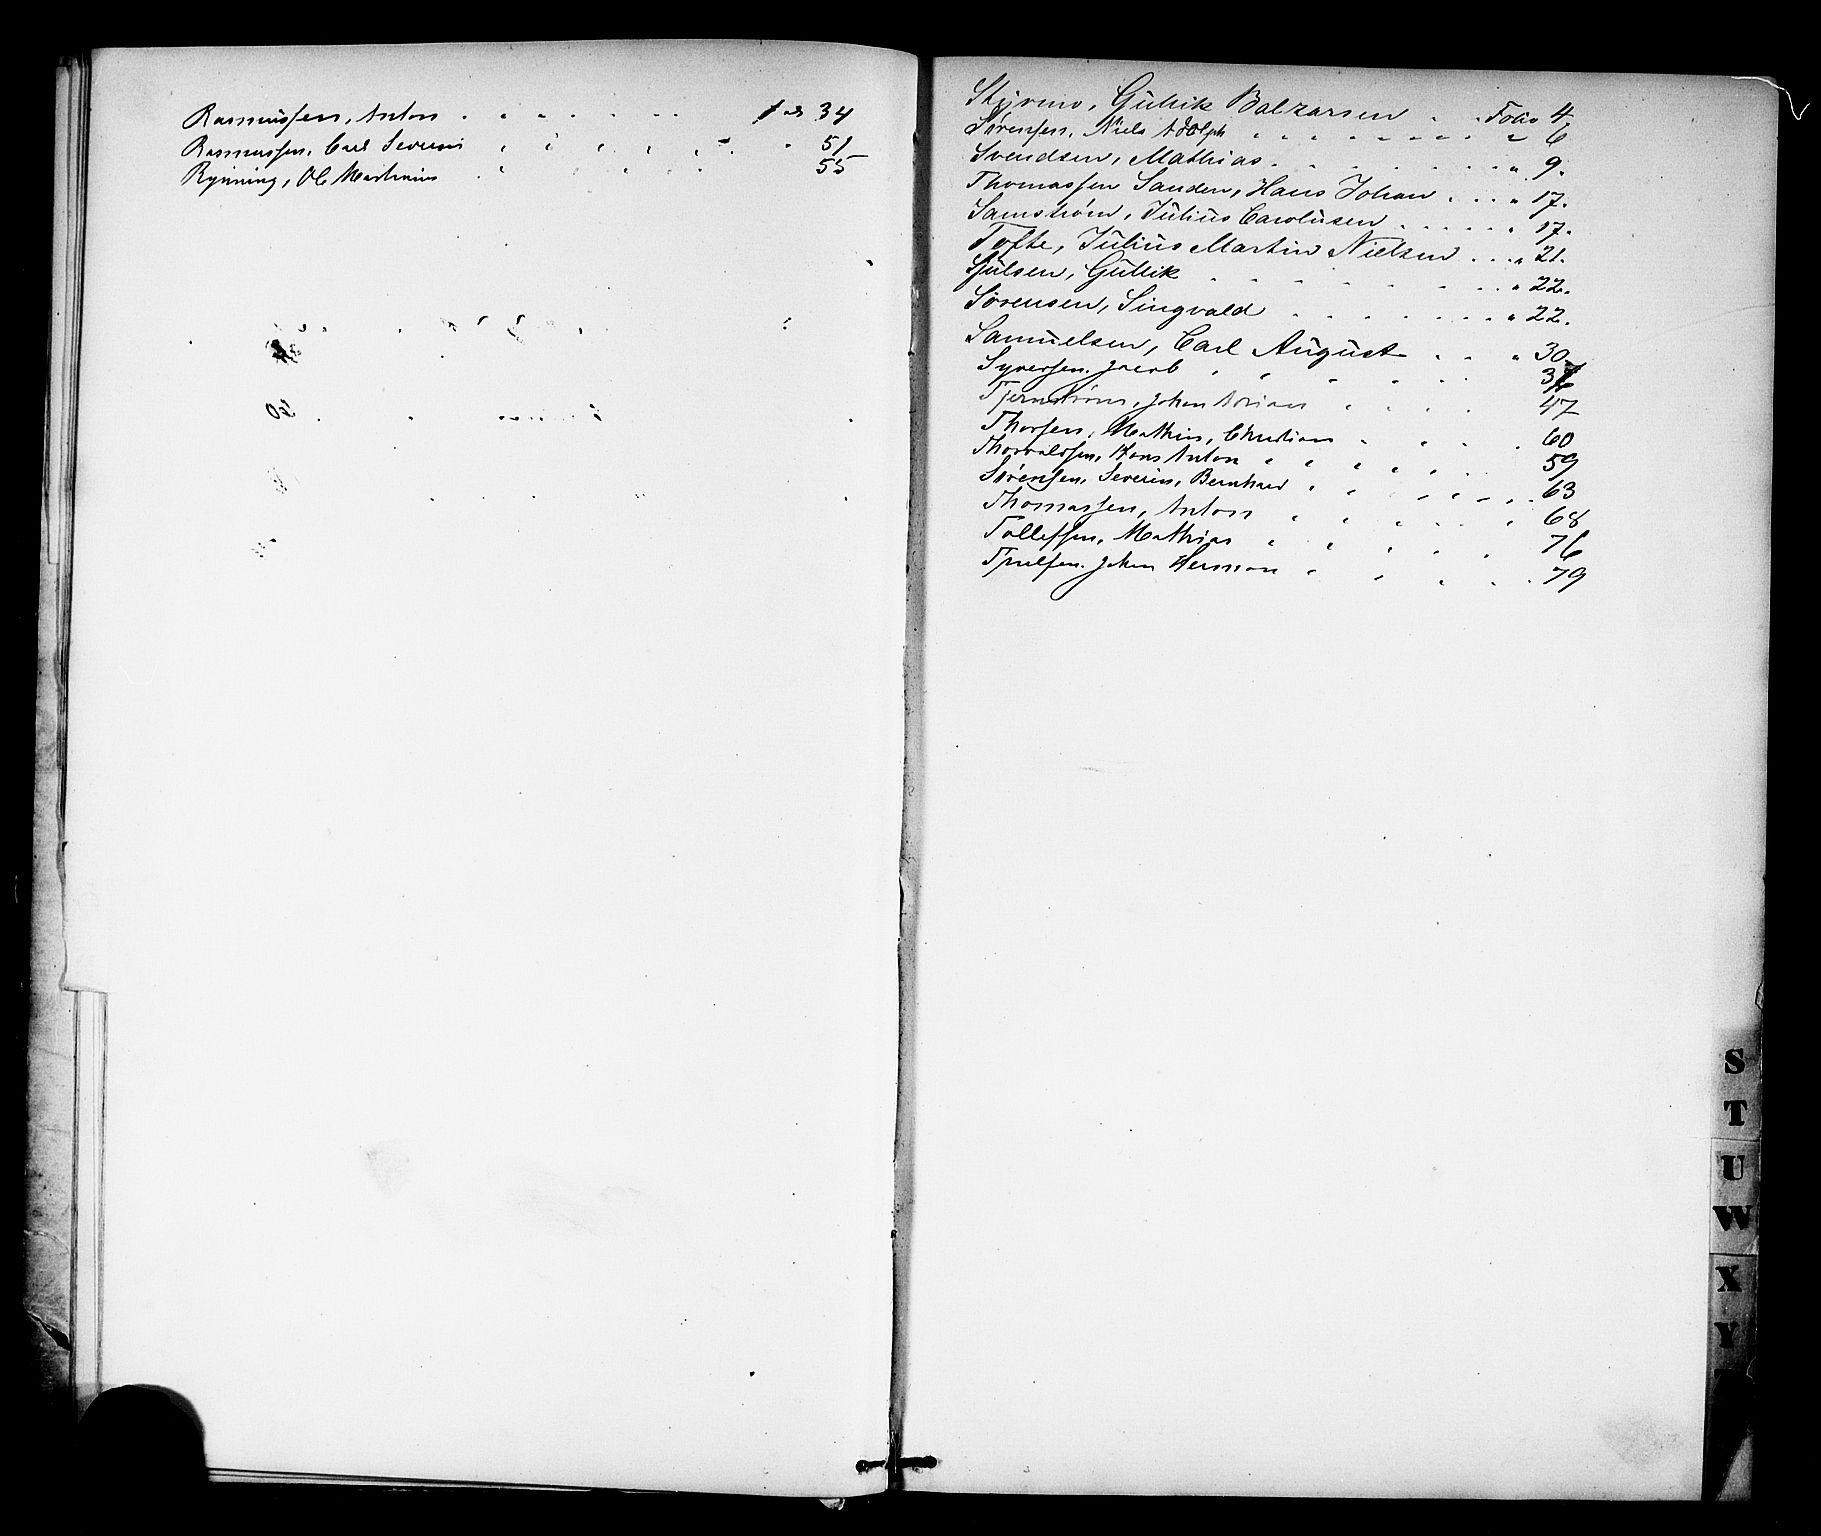 Rasmussen, Anton 34
Rasmussen, Carl Severin 51
Rynning, Ol Martinius 55
Styrmo, Gullik Balzarsen Folio 4.
Sørensen, Niels Adolph " 6
Svendsen, Mathias " 9.
Thomassen Sanden, Hans Johan " 17.
Samstrøm, Julius Carolusen " 17.
Tofte, Julius Martin Nielsen " 21.
Sjulsen, Gullik " 22.
Sørensen, Singvald " 22.
Samuelsen, Carl August " 30
Syversen, Jacob
Tjernstrøm, Johan Adrian 47
Thorsen, Mathias, Christian 60
Thorvaldsen, Hans Anton 59
Sørensen, Severin, Bernhard 63
Thomassen, Anton 68
Tollefsen, Mathias 76
Johan Herman 79
S
T
U
W
X
Y